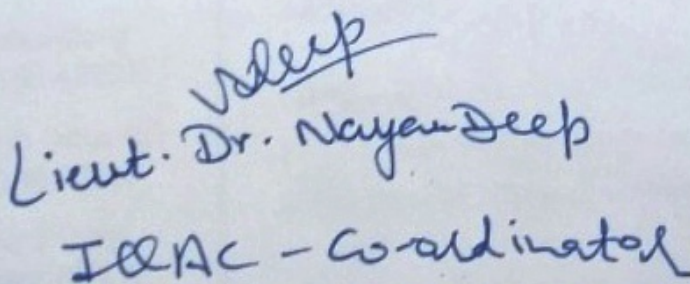 Lieut. Dr. Nayan Deep
IQAC - Co-ordinator